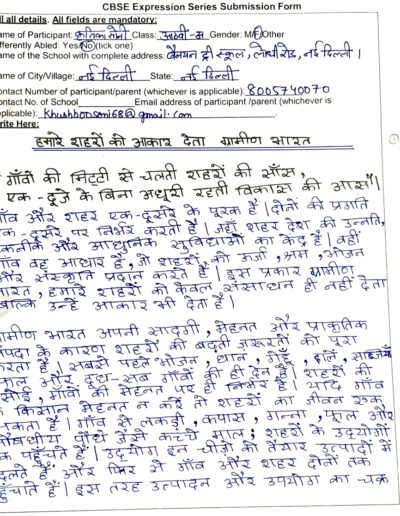 CBSE Expression Series Submission Form
ll all details. All fields are mandatory:
ame of Participant: कृतिका सोनी Class: आठवीं-अ Gender: M/F/Other
fferently Abled: Yes/No(tick one)
ame of the School with complete address: बनयन ट्री स्कूल, लोधी रोड, नई दिल्ली।
ame of City/Village: नई दिल्ली State: नई दिल्ली
ontact Number of participant/parent (whichever is applicable): 8005740070
ontact No. of School Email address of participant /parent (whichever is
pplicable): khushboosoni68@gmail.com
rite Here:
हमारे शहरों को आकार देता ग्रामीण भारत
गाँवों की मिट्टी से चलती शहरों की साँस,
एक-दूजे के बिना अधूरी रहती विकास की आस।
ाँव और शहर एक-दूसरे के पूरक हैं। दोनों की प्रगति
क-दूसरे पर निर्भर करती है। जहाँ शहर देश की उन्नति,
कनीक और आधुनिक सुविधाओं का केंद्र हैं। वहीं
ाँव वह आधार है, जो शहरों को ऊर्जा, श्रम, भोजन
और संस्कृति प्रदान करते हैं। इस प्रकार ग्रामीण
ारत, हमारे शहरों को केवल संसाधन ही नहीं देता
बल्कि उन्हें आकार भी देता है।
ामीण भारत अपनी सादगी, मेहनत और प्राकृतिक
ंपदा के कारण शहरों की बढ़ती ज़रूरतों को पूरा
रता है। सबसे पहले भोजन, धान, गेहूँ, दालें, सब्जियाँ
फल और दूध-सब गाँवों की ही देन हैं। शहरों की
सोई, गाँवों की मेहनत पर ही निर्भर है। यदि गाँव
के किसान मेहनत न करें तो शहरों का जीवन रुक
कता है। गाँव से लकड़ी, कपास, गन्ना, फूल और
षधीय पौधे जैसे कच्चे माल; शहरों के उद्योगों
क पहुँचते हैं। उद्योग इन चीज़ों को तैयार उत्पादों में
दलते हैं और फिर से गाँव और शहर दोनों तक
हुँचाते हैं। इस तरह उत्पादन और उपयोग का चक्र